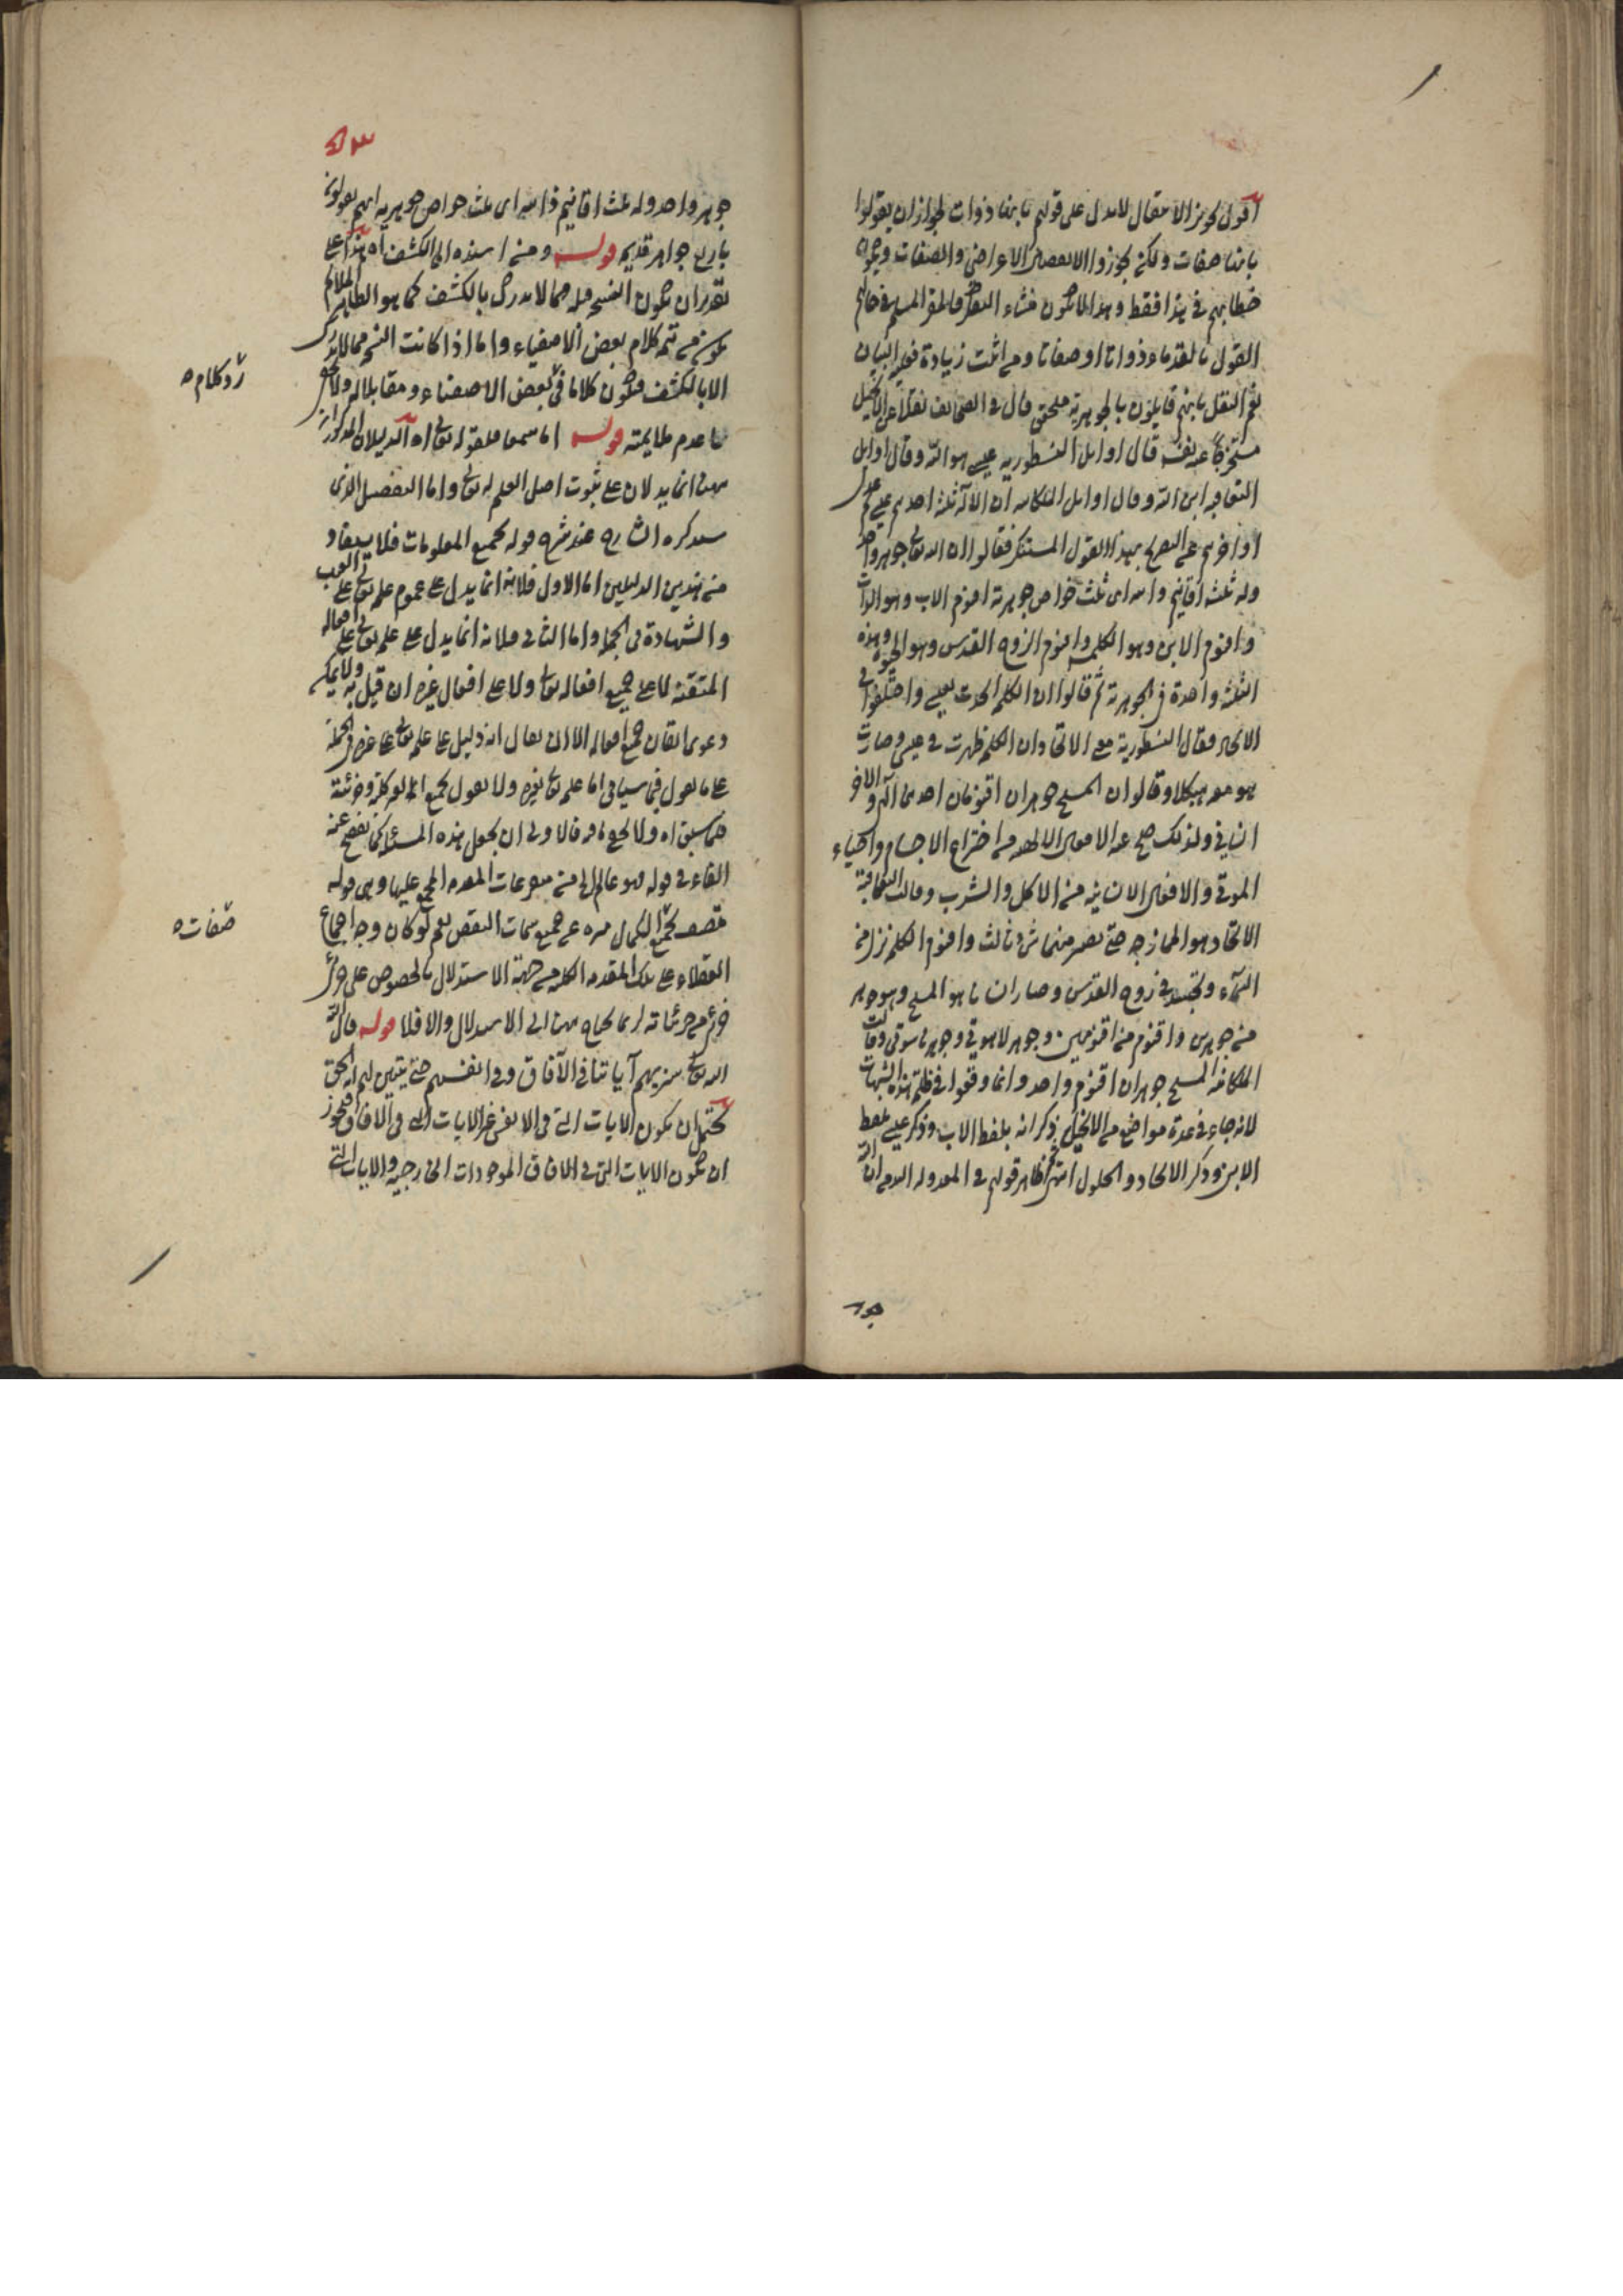 اقول تجويز الانتقال لا يدل على قولهم بانها ذوات لجواز ان يقولوا
بانها صفات ولكن يجوزوا الانتقال الاعراض والصفات ويكون
خطابهم في هذا فقط وهذا
القول بالقدماء ذواتا او صفاتا ومن اثبت زيادة فعليه البيان
نعم النقل بانهم قايلون بالجوهرية متحقق قال في الصحائف نقلا عن الانجيل
قال اوايل النسطورية عيسى هو الله وقال اوايل
اليعاقبه ابن الله وقال اوايل الملكانيه ان الآله ثلثة احدهم عيسى ثم عدل
اواخرهم عن التصريح بهذا القول المستنكر فقالوا ان الله تعالى جوهر واحد
وله ثلثة اقانيم ذاتيه اى ثلث خواص جوهرية اقنوم الاب وهو الذات
واقنوم الابن وهو الكلمه واقنوم الروح القدس وهو الحيوة وهذه
الثلثة واحدة في الجوهرية ثم قالوا ان الكلمه اتحدت بعيسى واختلفوا في
الاتحاد فقال النسطورية معنى الاتحاد ان الكلمه ظهرت في عيسى وصارت
هو معه هيكلا وقالوا ان المسيح جوهران اقنومان احدهما آلهى والاخر
انساني ولذلك صح عنه الافعال الالهيه من اختراع الاجسام واحياء
الموتى والافعال الانسانيه من الاكل والشرب وقالت اليعاقبة
الاتحاد هو الممازجه حتى يصير منهما شئ ثالث واقنوم الكلمه نزل من
السماء وتجسد في روح القدس وصار انسانا هو المسيح وهو جوهر
من جوهرين واقنوم من اقنومين وجوهر لاهوتي وجوهر ناسوتي وقالت
الملكانيه المسيح جوهران اقنوم واحد وانما وقعوا في ظلمة هذه الشبهات
لانه جاء في عدة مواضع من الانجيل ذكر الله بلفظ الاب وذكر عيسى بلفظ
الابن وذكر الاتحاد والحلول انتهى ظاهر قولهم
جوهر
٥٣
جوهر واحد وله ثلث اقانيم ذاتيه اى ثلث خواص جوهريه انهم يقولون
باربع جواهر قديمه قوله ومن اسنده الى الكشف اه هذا على
تقدير ان يكون النسخه قوله مما لا يدرك بالكشف كما هو الظاهر الملايم
يكون من تتمه كلام بعض الاصفياء واما اذا كانت النسخه مما لا يدرك
الا بالكشف فيكون كلاما في رد كلام بعض الاصفياء ومقابلا له ولا يخفى
ما عدم ملايمته قوله اما سمعا فلقوله تعالى اه الدليلان المذكوران
ههنا انما يدلان على ثبوت اصل العلم له تعالى واما التفصيل الذي
سيذكره الشارح عند شرح قوله بجميع المعلومات فلا يستفاد
من هذين الدليلين اما الاول فلانه انما يدل على عموم علمه تعالى على الغيب
والشهادة في الجمله واما الثاني فلانه انما يدل على علمه تعالى على افعاله
المتقنه لا على جميع افعاله تعالى ولا على افعال غيره ان قيل به ولا يمكن
دعوى اتقان جميع افعاله الا ان يقال انه دليل على علمه تعالى على غيره في الجملة
على ما يقول فيما سياتى اما علمه تعالى بغيره ولا يقول بجميع
فما سبق اه ولا يخفى ما فيه فالاولى ان يجعل هذه المسئلة كما يفصح عنه
الفاء في قوله فهو عالم الى من متفرعات المقدمه المجمع عليها وهى قوله
متصف بجميع صفات الكمال منزه عن جميع سمات النقص نعم لو كان وجه اجماع
العقلاء على تلك المقدمه الكليه من جهة الاستدلال بالخصوص على جزئ
جزئ من جزئياته لربما يحتاج ههنا الى الاستدلال والا فلا قوله قال الله
الله تعالى سنريهم آياتنا في الآفاق وفي انفسهم حتى يتبين لهم انه الحق
يحتمل ان يكون الايات التى في الانفس غير الايات التى في الافاق فيجوز
ان يكون الايات التى في الافاق الموجودات الخارجيه والايات التى
رد كلام صح
صفات صح